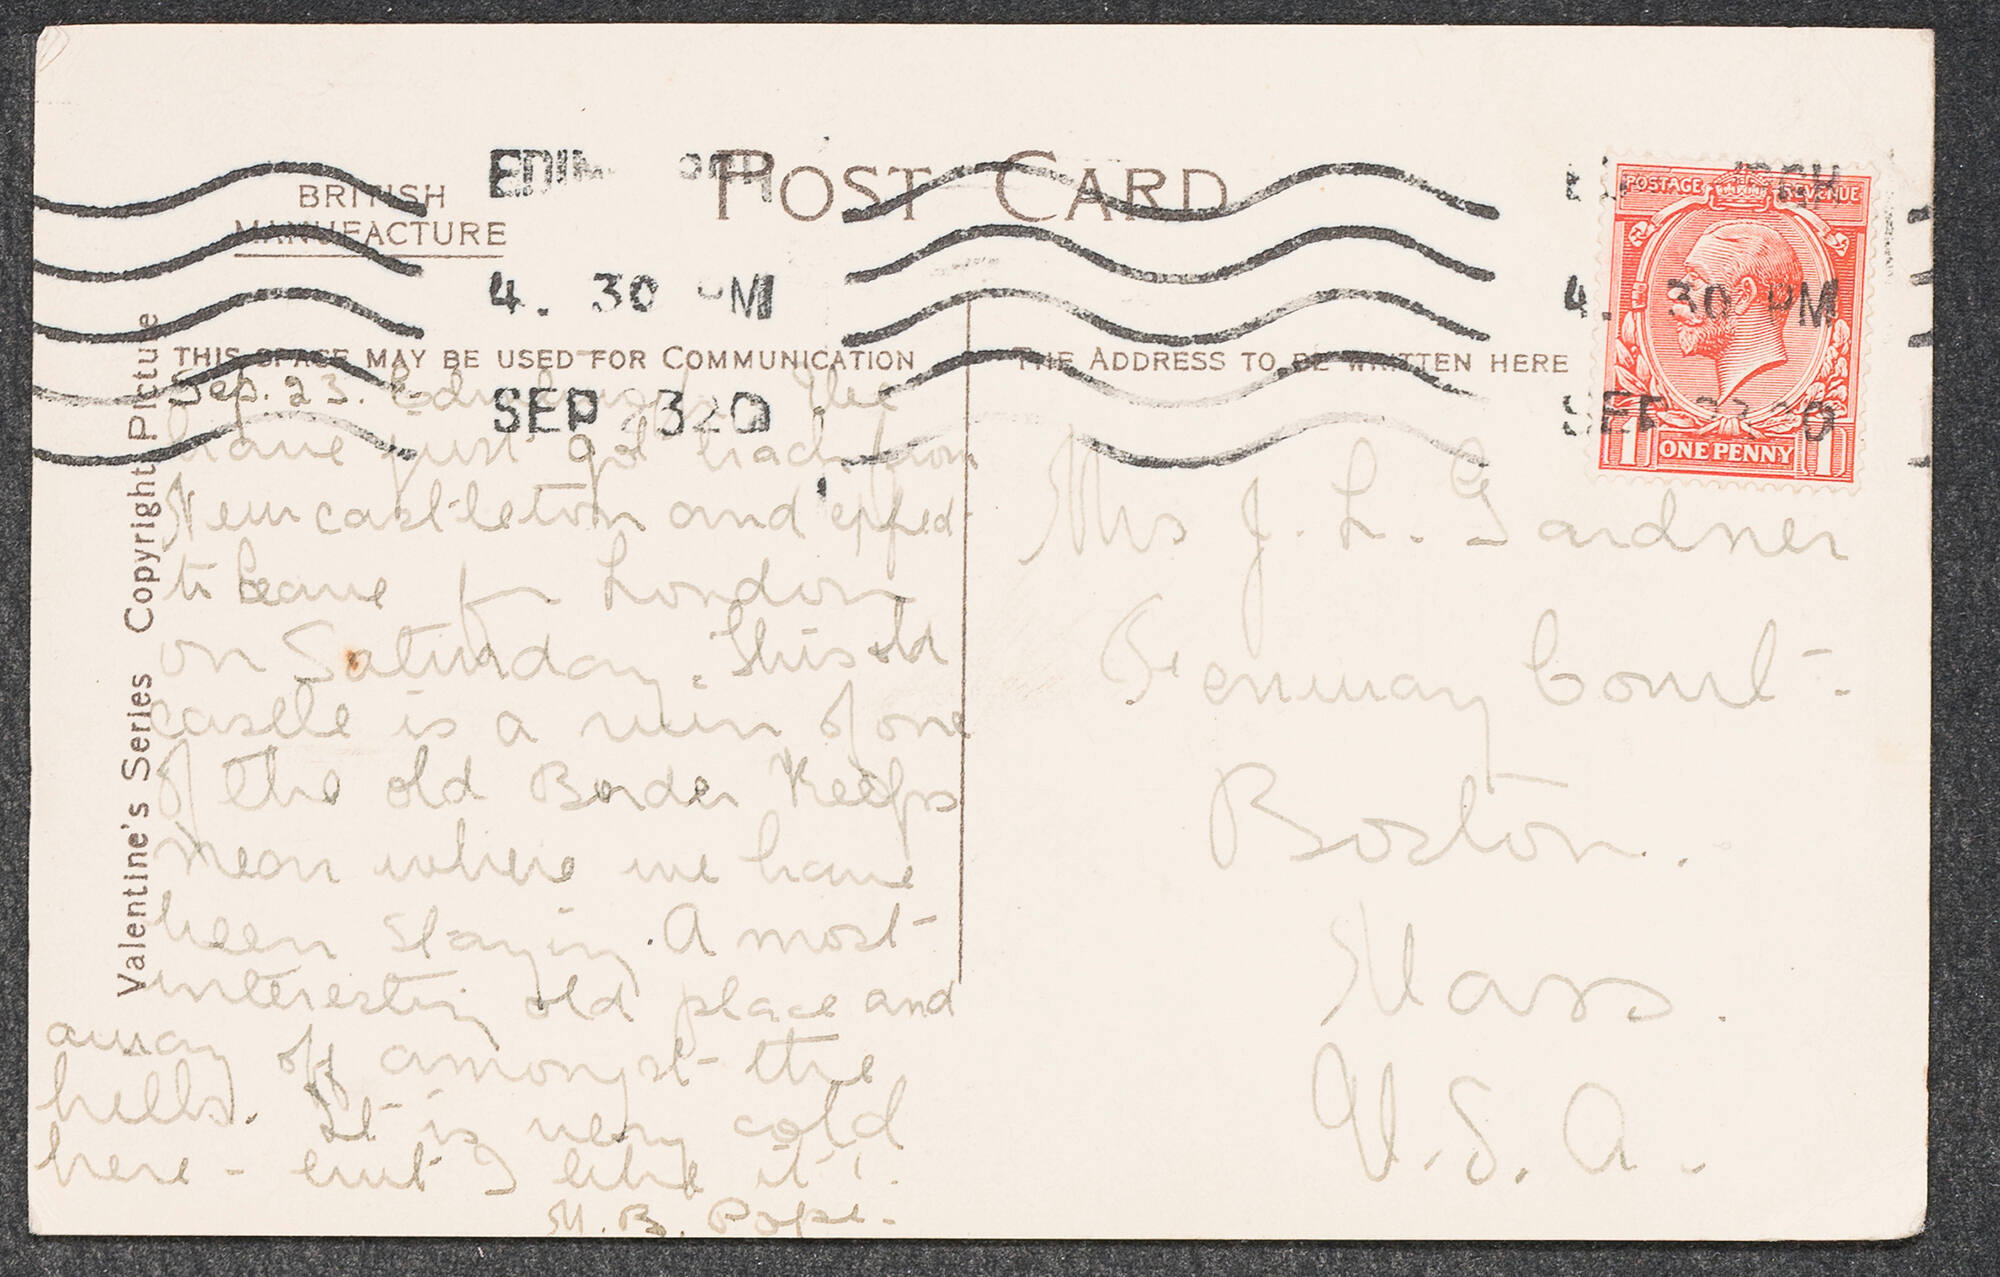 POST CARD
BRITISH
MANUFACTURE
4. 30 PM
4. 30 PM
THIS SPACE MAY BE USED FOR COMMUNICATION
THE ADDRESS TO BE WRITTEN HERE
SEP 23 20
POSTAGE REVENUE
1 ONE PENNY 1
Valentine's Series Copyright Picture
Sep. 23. Edinburgh. We
have just got back from
Newcastleton and expect
to leave for London
on Saturday. This old
castle is a ruin of one
of the old Border Keeps
near where we have
been staying. A most
interesting old place and
away off amongst the
hills. It is very cold
here - but I like it!
M. B. Pope.
Mrs J. L. Gardner
Fenway Court
Boston.
Mass.
U.S.A.